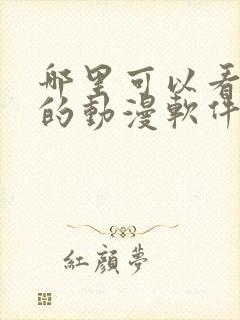 哪里可以看
的動漫軟件
紅顏夢